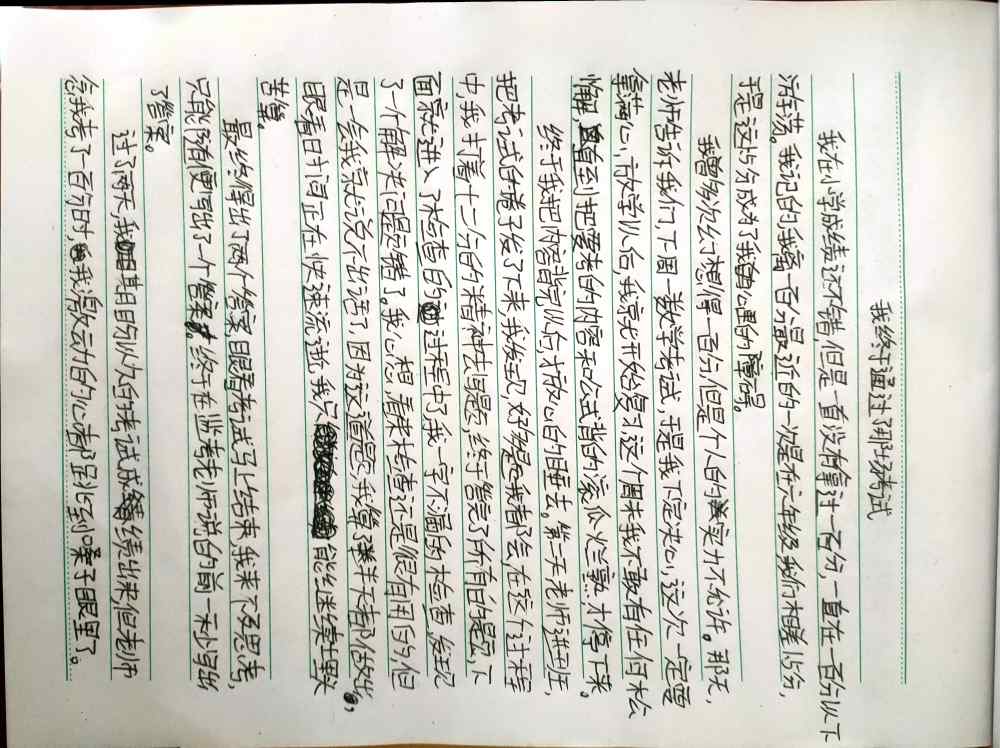 我终于通过了那场考试
我在小学成绩还不错,但是一直没有拿过一百分,一直在一百分以下
活荡。我记的我离一百分最近的一次是在六年级我们相差15分,
于是这15分成为了我的障碍。
我曾多次幻想得一百分但是个人的实力不允许。那天,
老师告诉我们,下周一数学考试,于是我下定决心,这次一定要
拿满心,放学以后,我京尤开始复习,这个周末我不敢有任何松
懈,直到把要考的内容和公式背的滚瓜烂熟,才停下来。
终于我把内容背完以后,才放心的睡去。第二天老师进到班,
把考试白卷子发了下来,我发现,好多题我都会,在这个过程
中,我打着十二分的精神去写题,终于写完了所有的题后,下
面就进入了检查的过程中了我一字不漏的检查,发现
了一个解决问题写错了。我心想,看来检查还是很有用的,但
是一会我就说不出话了,因为这道题我算了半天都不做出,
眼看时间正在快速流逝,我只能继续埋头
苦算。
最终得出了两个答案眼看考试马上结束,我来不及思考,
只能随便写出了一个答案。终于在监考老师说的前一末小写出
了答案。
过了两天,我期目的以久的考试成绩出来,但老师
念我考了一百分时,我激动的心都到了嗓子眼里了。